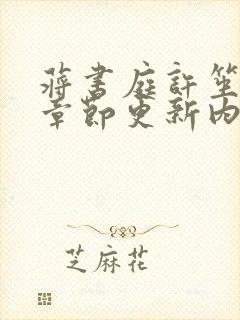 蒋书庭许笙
章节更新内
芝麻花